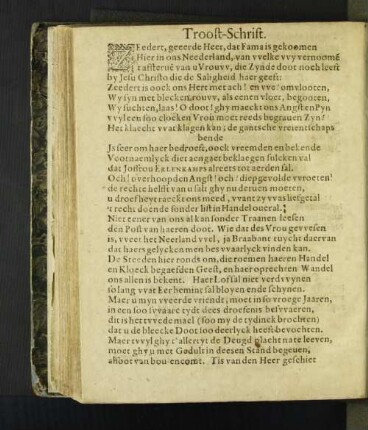 Troost-Schrift.
Eedert, geeerde Heer, dat Fama is gekomen
Hier in ons Neederland, van vvelke vvy vernoomē
t'affterné van uVrouvv, die Zynde door noch leeft
by Jesu Christo die de Saligheid haer geeft:
Zeedert is oock ons Hert met ach! en vve! omvlooten,
Wy syn met bleecken rouvv, als eenen vloet, begooten,
Wy suchten, laas! O door! ghy maeckt ons Angsten Pyn
vvyl een soo cloecken Vrou moet reeds begraven Zyn?
Het klaecht vvat klagen kan; de gantsche vreientschaps
bende
Js seer om haer bedroeft, oock vreemden en bekende
Vootnaemlyck die t aengaet beklaegen sulcken val
dat Joffrou ERLENKAMPS alreets tot aerden sal.
Och! overhoopden Angst! och! diepgevolde vvroeten!
de rechte helft van u salt ghy nu deruen moeten,
u droefheyt raeckt ons meed, vvant zy vvas liefgetal
t recht doende sonder list in Handel overal.
Niet eener van ons al kan sonder Traanen leesen
den Post van haeren doot. Wie dat des Vrou gevvesen
is, vveet het Neerland vvel, ja Braabant tuycht daer van
dat haers gelycken men hes vvaarlyck vinden kan.
De Steeden hier ronds om, die roemen haeren Handel
en Kloeck begaefden Geest, en haer oprechten Wandel
ons allen is bekent. Haer Lof sal niet verdvvynen
so lang vvat Eer bemint sal bloyen ende schynen.
Maer u myn vveerde vriende, moet in so vroege Jaaren,
in een soo svvaare tydt dees droefenis besvvaeren,
dit is het tvvede mael (soo my de tydinck brochten)
dat u de bleecke Doot soo deerlyck heeft bevochten.
Maer tvvyl ghy t'aller tyt de Deugd placht nate leeven,
moet ghy u met Gedult in deesen Stand begeuen,
alsoot van bou en comt. Tis van den Heer geschiet